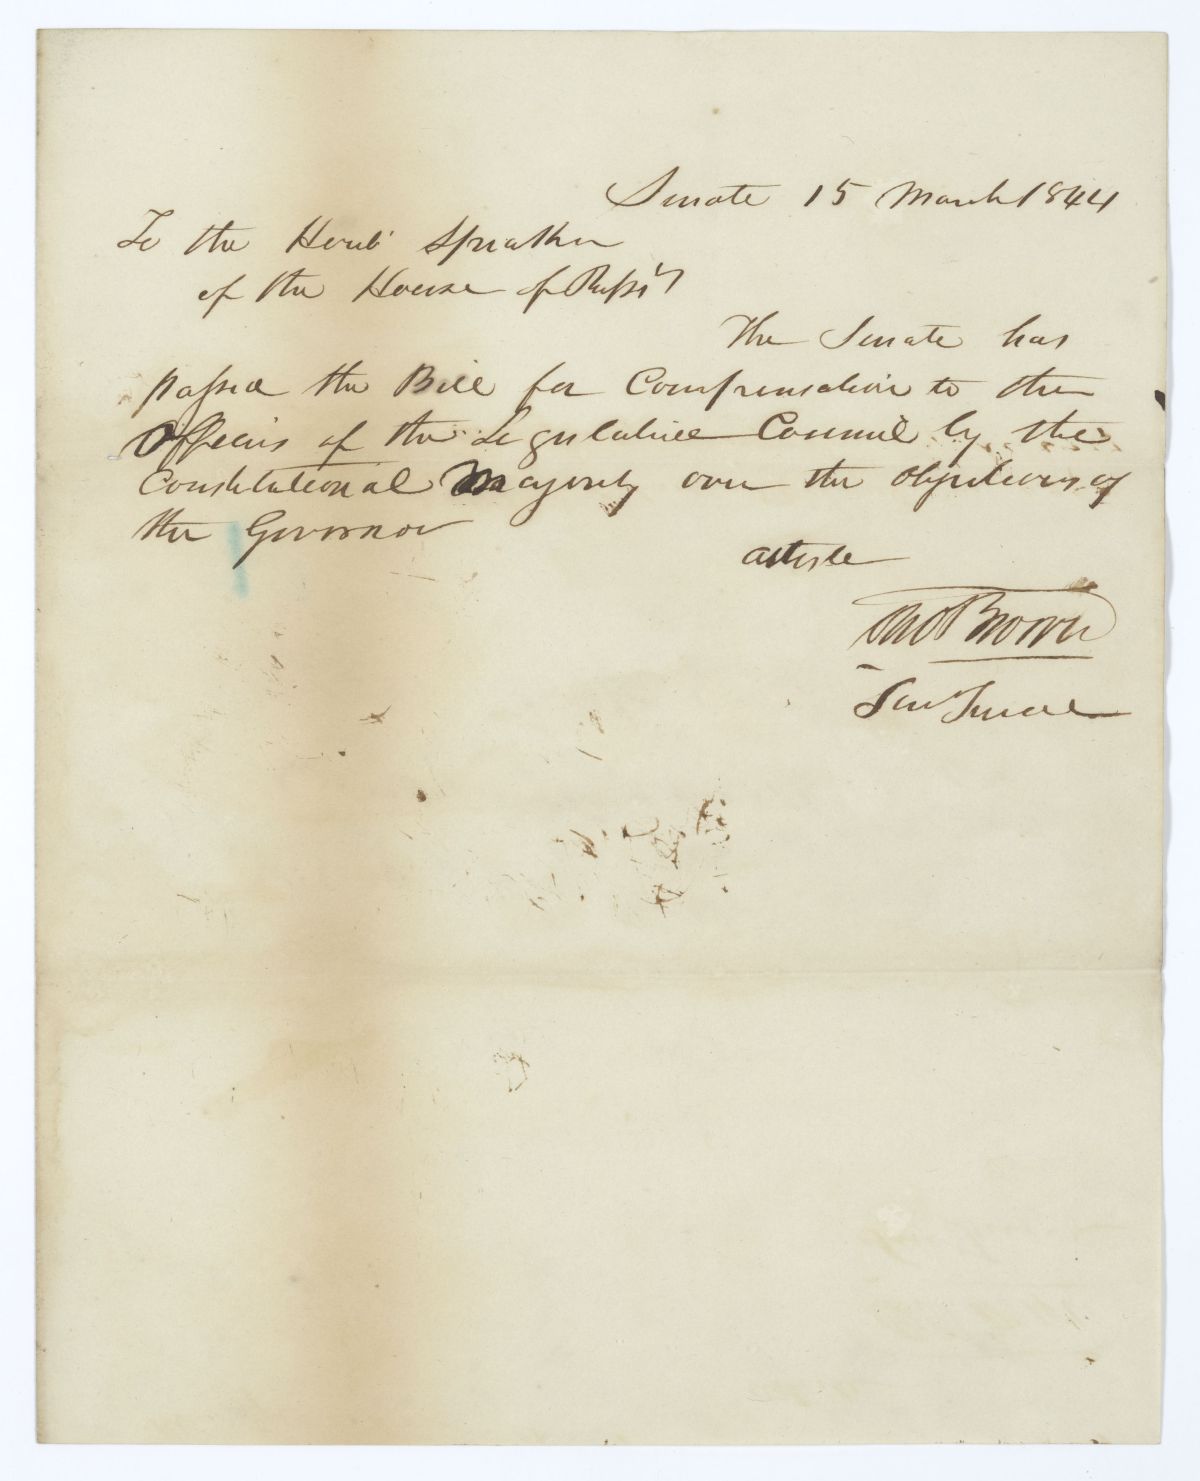 Senate 15 March 1844
To the Honb Speaker
of the House of Reps
The Senate has
passed the Bill for Compensation to the
Officers of the Legislative Council by the
Constitutional Majority over the objections of
the Governor
attest
Tho Brown
Sec Senate